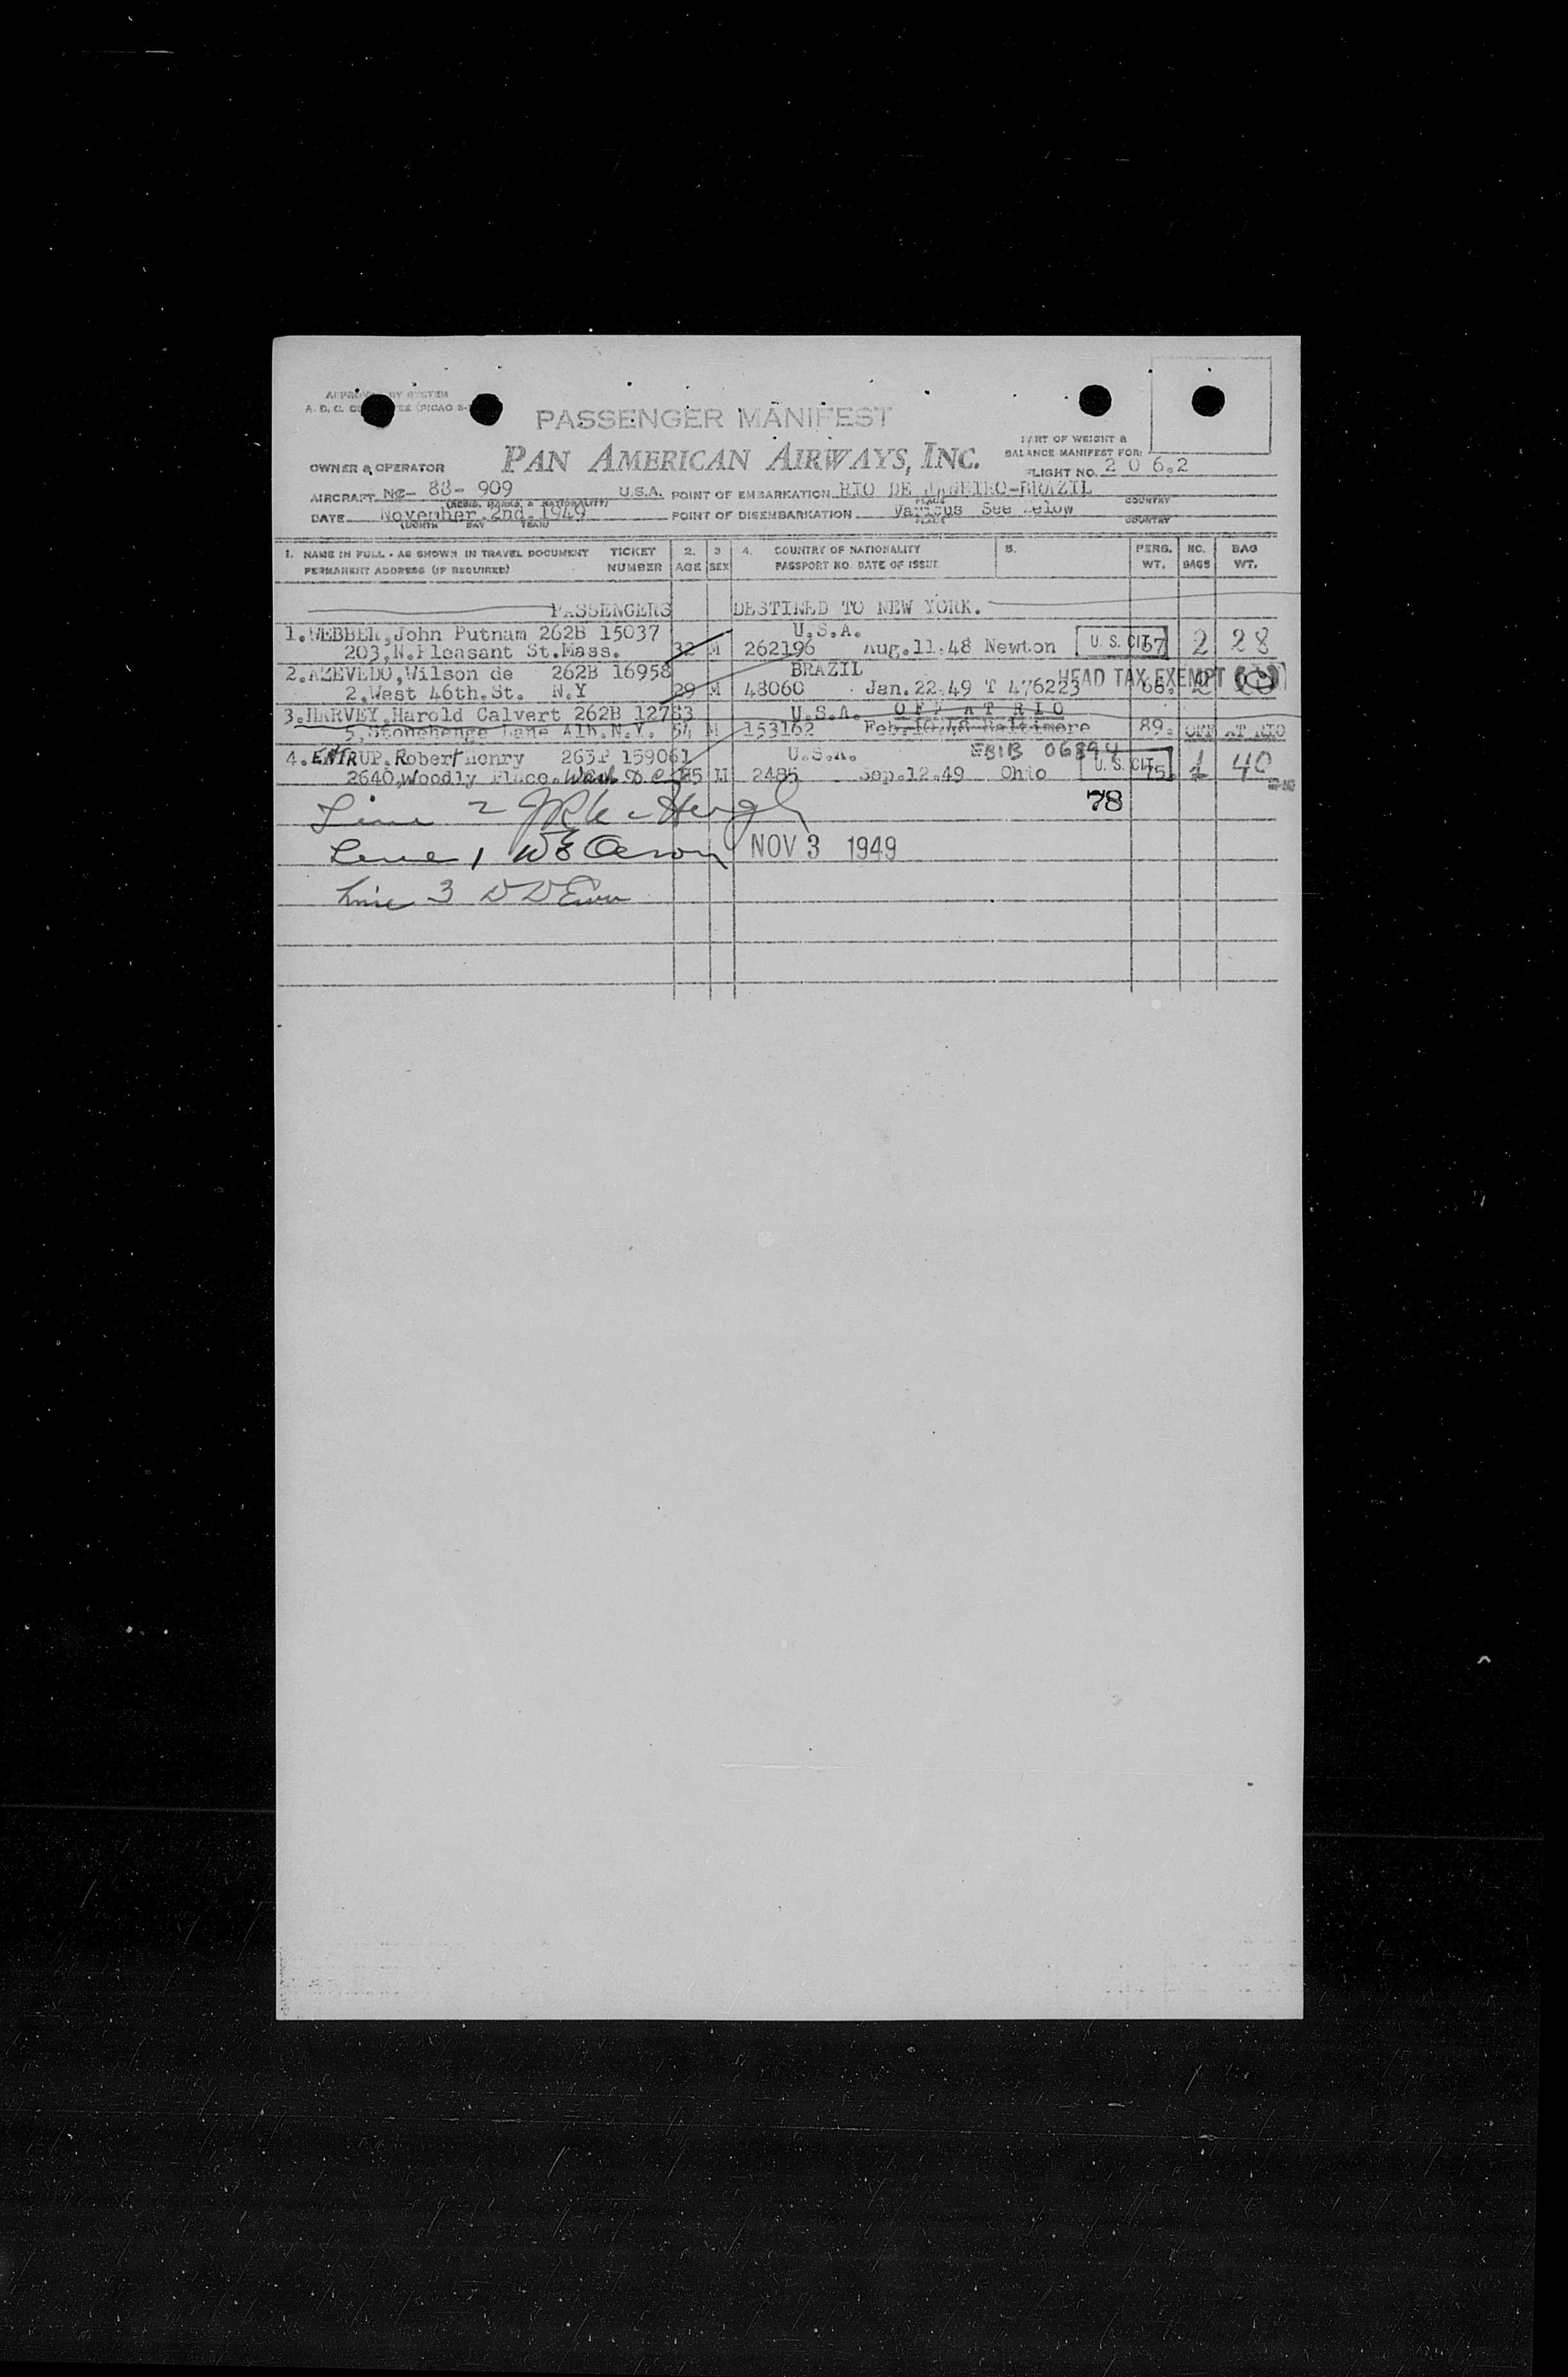 PASSENGER MANIFEST
PAN AMERICAN AIRWAYS, INC.
PART OF WEIGHT &
BALANCE MANIFEST FOR:
OWNER & OPERATOR
FLIGHT NO. 2 0 6.2
AIRCRAFT NC- 88- 909 U.S.A. POINT OF EMBARKATION RIO DE JANEIRO-BRAZIL
DATE November.2nd.1949 POINT OF DISEMBARKATION Various See Below
1. NAME IN FULL - AS SHOWN IN TRAVEL DOCUMENT TICKET 2. 3 4. COUNTRY OF NATIONALITY 5. PERS. NO. BAG
PERMANENT ADDRESS (IF REQUIRED) NUMBER AGE SEX PASSPORT NO. DATE OF ISSUE WT. BAGS WT.
PASSENGERS DESTINED TO NEW YORK.
1. WEBBER, John Putnam 262B 15037 U.S.A.
203, N. Pleasant St. Mass. 32 M 262196 Aug.11.48 Newton U. S. CIT. 67 2 28
2. AZEVEDO, Wilson de 262B 16958 BRAZIL
2.West 46th.St. N.Y 29 M 48060 Jan.22.49 T 476223 HEAD TAX EXEMPT
3. HARVEY, Harold Calvert 262B 12763 U.S.A. OFF AT RIO
5, Stonehenge Lane Alb.N.Y. 54 M 153162 Feb.10.48 Baltimore 89. OFF AT RIO
4. ENTRUP. Robert Henry 263P 159061 U.S.A. 06894
2640, Woodly Place. Wash D C 25 M 2485 Sep.12.49 Ohio U. S. CIT. 75. 1 40
78
Line 2
Line 1 NOV 3 1949
Line 3